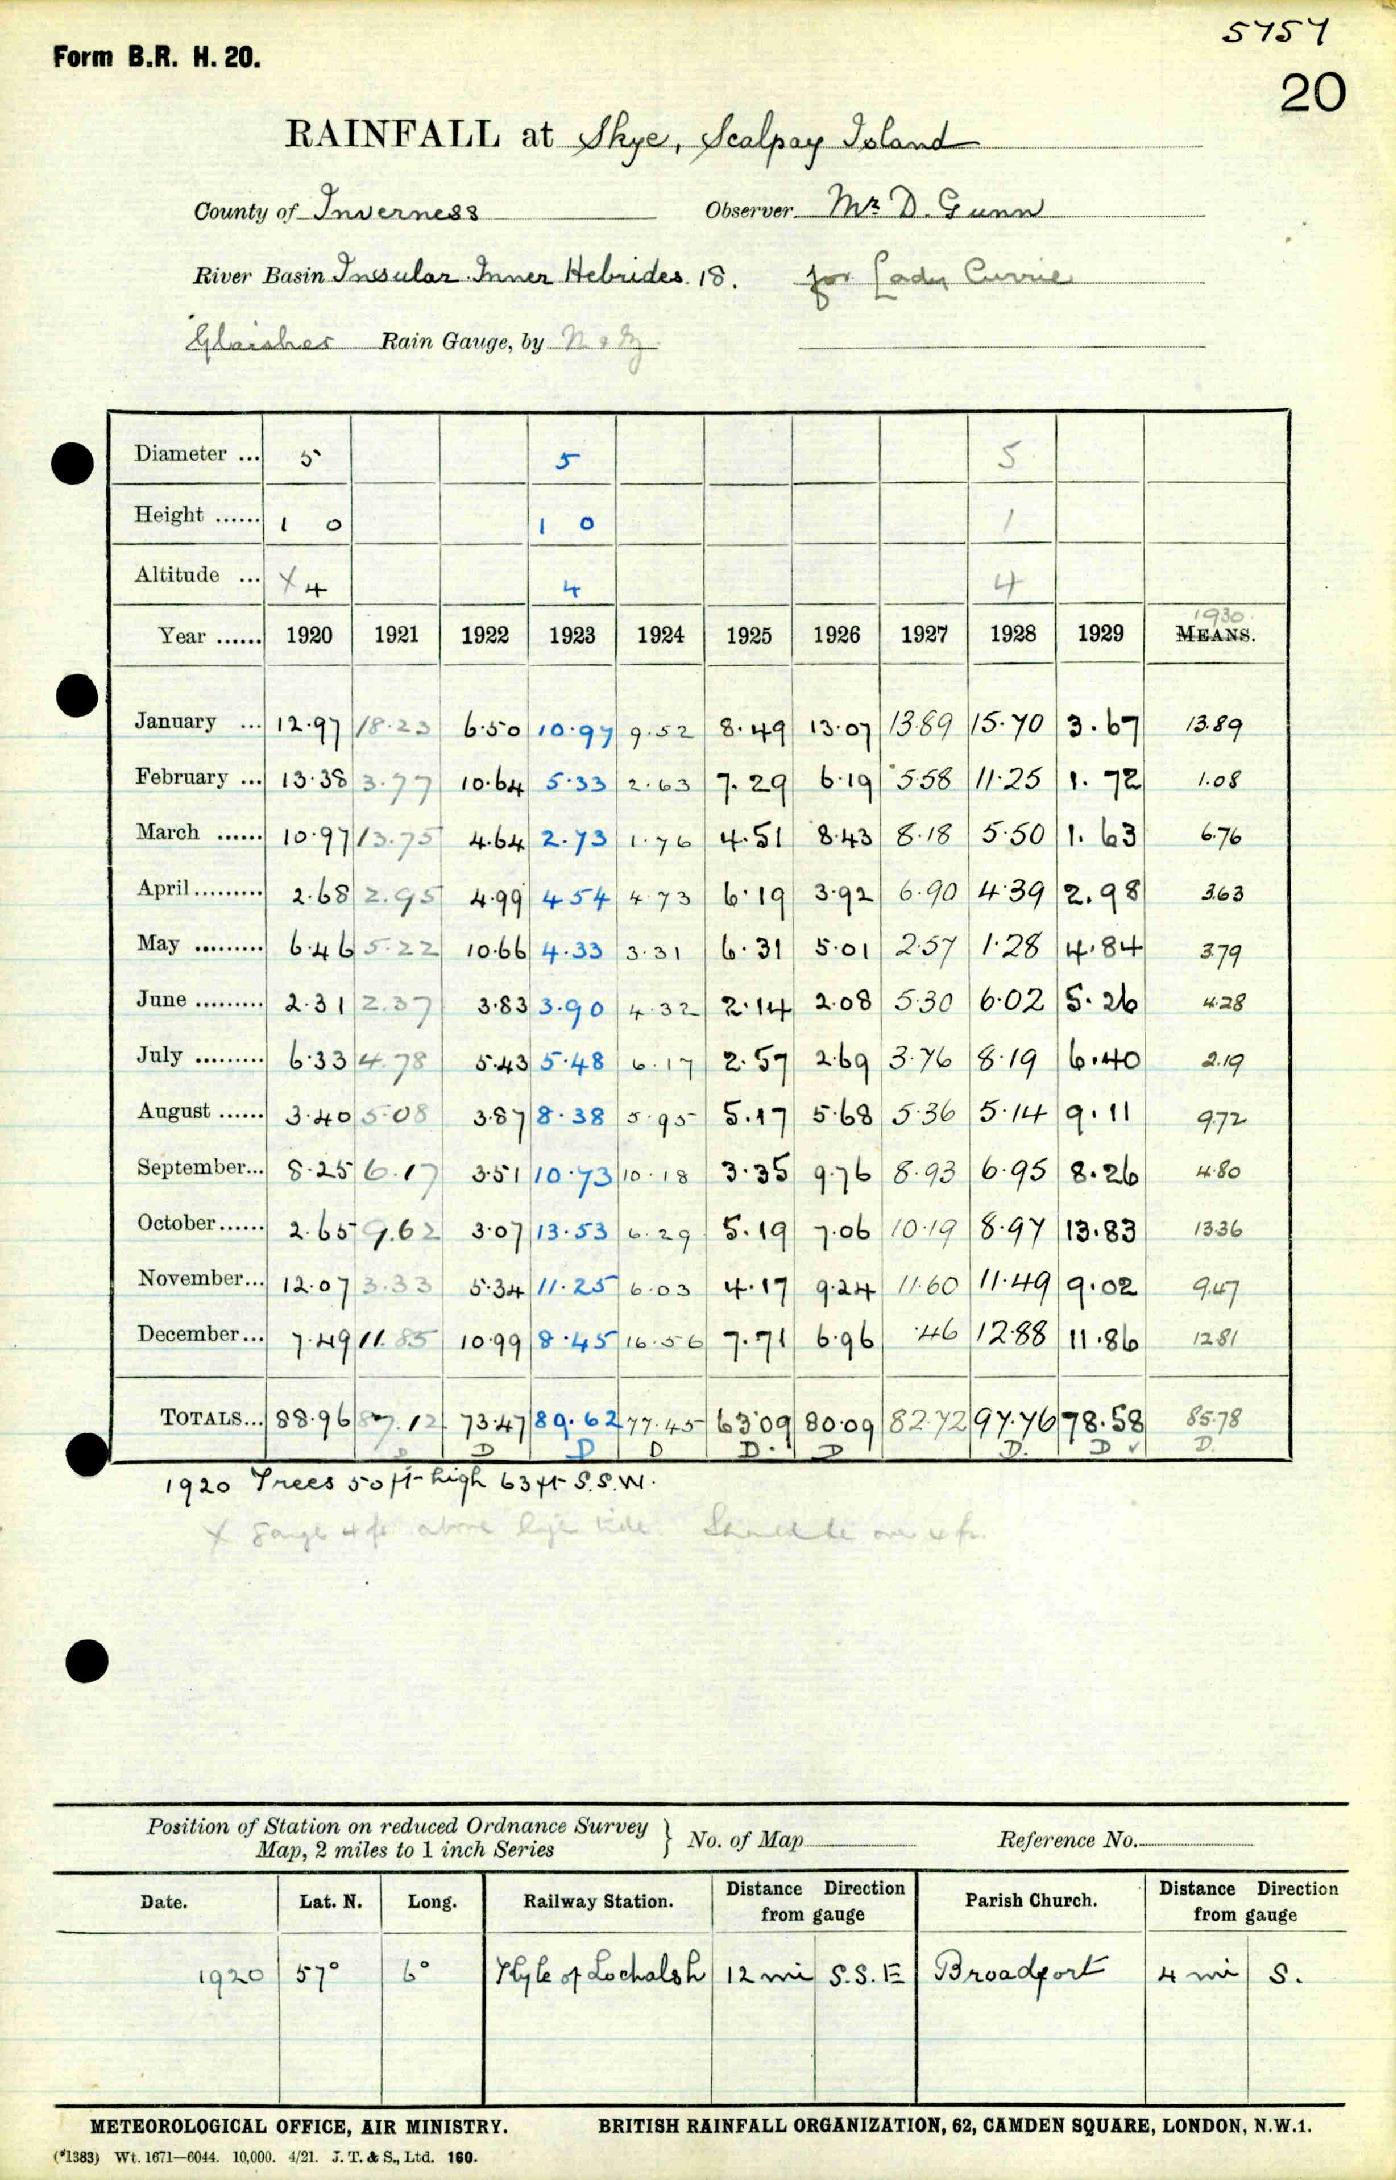 5757
Form B.R. H. 20.
20
RAINFALL at Skye, Scalpay Island
County of Inverness Observer Mr D. Gunn
River Basin Insular. Inner Hebrides. 18. for Lady Currie
Glaisher Rain Gauge, by N & Z
Diameter ... 5 5 5
Height ...... 1 0 1 0 1
Altitude ... X 4 4 4
1930.
Year ...... 1920 1921 1922 1923 1924 1925 1926 1927 1928 1929 MEANS.
January ... 12.97 18.23 6.50 10.97 9.52 8.49 13.07 13.89 15.70 3.67 13.89
February ... 13.38 3.77 10.64 5.33 2.63 7.29 6.19 5.58 11.25 1.72 1.08
March ...... 10.97 13.75 4.64 2.73 1.76 4.51 8.43 8.18 5.50 1.63 6.76
April......... 2.68 2.95 4.99 4.54 4.73 6.19 3.92 6.90 4.39 2.98 3.63
May ......... 6.46 5.22 10.66 4.33 3.31 6.31 5.01 2.57 1.28 4.84 3.79
June ......... 2.31 2.37 3.83 3.90 4.32 2.14 2.08 5.30 6.02 5.26 4.28
July ......... 6.33 4.78 5.43 5.48 6.17 2.57 2.69 3.76 8.19 6.40 2.19
August ...... 3.40 5.08 3.87 8.38 5.95 5.17 5.68 5.36 5.14 9.11 9.72
September... 8.25 6.17 3.51 10.73 10.18 3.35 9.76 8.93 6.95 8.26 4.80
October...... 2.65 9.62 3.07 13.53 6.29 5.19 7.06 10.19 8.97 13.83 13.36
November... 12.07 3.33 5.34 11.25 6.03 4.17 9.24 11.60 11.49 9.02 9.47
December... 7.49 11.85 10.99 8.45 16.56 7.71 6.96 .46 12.88 11.86 12.81
TOTALS... 88.96 87.12 73.47 89.62 77.45 63.09 80.09 82.72 97.76 78.58 85.78
D D D D D. D D. D ✓ D.
1920 Trees 50 ft high 63 ft S.S.W.
X gauge 4 ft above high tide. Should be over 4 ft.
Position of Station on reduced Ordnance Survey
Map, 2 miles to 1 inch Series } No. of Map Reference No.
Date. Lat. N. Long. Railway Station. Distance Direction from gauge Parish Church. Distance Direction from gauge
1920 57° 6° Kyle of Lochalsh 12 mi S.S.E Broadford 4 mi S.
METEOROLOGICAL OFFICE, AIR MINISTRY. BRITISH RAINFALL ORGANIZATION, 62, CAMDEN SQUARE, LONDON, N.W.1.
(*1383) Wt. 1671—6044. 10,000. 4/21. J. T. & S., Ltd. 160.